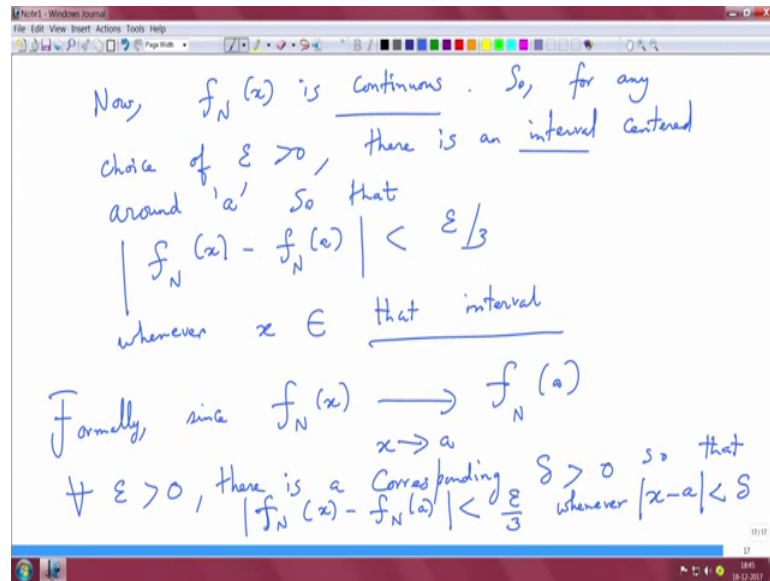 Note1 - Windows Journal
File Edit View Insert Actions Tools Help
Page Width
Now, f_N (x) is continuous. So, for any
choice of ε > 0, there is an interval centered
around 'a' so that
| f_N (x) - f_N (a) | < ε/3
whenever x ∈ that interval
Formally, since f_N (x) ⟶ f_N (a)
x → a
∀ ε > 0, there is a corresponding δ > 0 so that
| f_N (x) - f_N (a) | < ε/3 whenever |x - a| < δ
17/17
17
18:45
18-12-2017